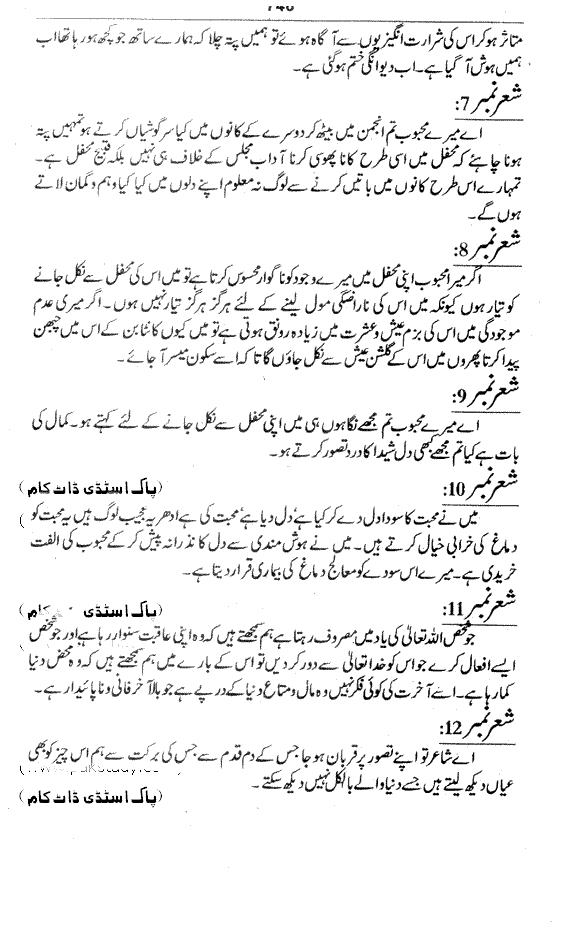 متاثر ہو کر اس کی شرارت انگیزیوں سے آگاہ ہوئے تو ہمیں پتہ چلا کہ ہمارے ساتھ جو کچھ ہو رہا تھا اب
ہمیں ہوش آ گیا ہے۔ اب دیوانگی ختم ہو گئی ہے۔
شعر نمبر 7:
اے میرے محبوب تم انجمن میں بیٹھ کر دوسرے کے کانوں میں کیا سرگوشیاں کرتے ہو تمہیں پتہ
ہونا چاہئے کہ محفل میں اسی طرح کانا پھوسی کرنا آداب مجلس کے خلاف ہی نہیں بلکہ قبیح محفل ہے۔
تمہارے اس طرح کانوں میں باتیں کرنے سے لوگ نہ معلوم اپنے دلوں میں کیا کیا وہم و گمان لاتے
ہوں گے۔
شعر نمبر 8:
اگر میرا محبوب اپنی محفل میں میرے وجود کو ناگوار محسوس کرتا ہے تو میں اس کی محفل سے نکل جانے
کو تیار ہوں کیونکہ میں اس کی ناراضگی مول لینے کے لئے ہرگز ہرگز تیار نہیں ہوں۔ اگر میری عدم
موجودگی میں اس کی بزم عیش و عشرت میں زیادہ رونق ہوتی ہے تو میں کیوں کانٹا بن کے اس میں چبھن
پیدا کرتا پھروں میں اس کے گلشن عیش سے نکل جاؤں گا تا کہ اسے سکون میسر آ جائے۔
شعر نمبر 9:
اے میرے محبوب تم مجھے نگاہوں ہی میں اپنی محفل سے نکل جانے کے لئے کہتے ہو۔ کمال کی
بات ہے کیا تم مجھے بھی دل شیدا کا درد تصور کرتے ہو۔
شعر نمبر 10:
(پاک اسٹڈی ڈاٹ کام)
میں نے محبت کا سودا دل دے کر کیا ہے' دل دیا ہے' محبت کی ہے ادھر یہ عجیب لوگ ہیں یہ محبت کو
دماغ کی خرابی خیال کرتے ہیں۔ میں نے ہوش مندی سے دل کا نذرانہ پیش کر کے محبوب کی الفت
خریدی ہے۔ میرے اس سودے کو معالج دماغ کی بیماری قرار دیتا ہے۔
شعر نمبر 11:
(پاک اسٹڈی کام)
جو شخص اللہ تعالیٰ کی یاد میں مصروف رہتا ہے ہم سمجھتے ہیں کہ وہ اپنی عاقبت سنوار رہا ہے اور جو شخص
ایسے افعال کرے جو اس کو خدا تعالیٰ سے دور کر دیں تو اس کے بارے میں ہم سمجھتے ہیں کہ وہ محض دنیا
کما رہا ہے۔ اسے آخرت کی کوئی فکر نہیں وہ مال و متاع دنیا کے درپے ہے جو بالآخر فانی و ناپائیدار ہے۔
شعر نمبر 12:
اے شاعر تو اپنے تصور پر قربان ہو جا جس کے دم قدم سے جس کی برکت سے ہم اس چیز کو بھی
عیاں دیکھ لیتے ہیں جسے دنیا والے بالکل نہیں دیکھ سکتے۔
(پاک اسٹڈی ڈاٹ کام)